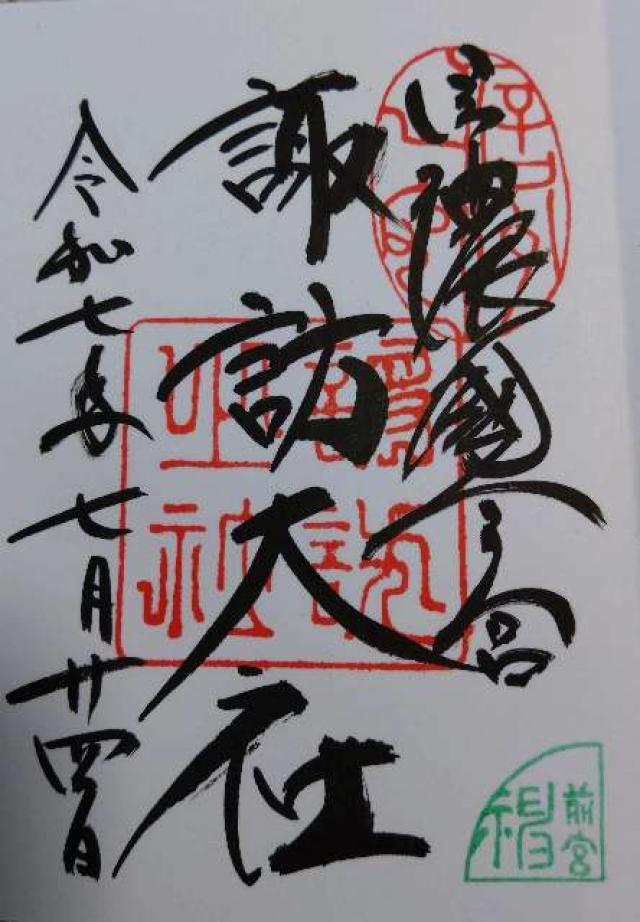 信濃國一之宮
諏訪大社
令和七年七月廿四日
前宮